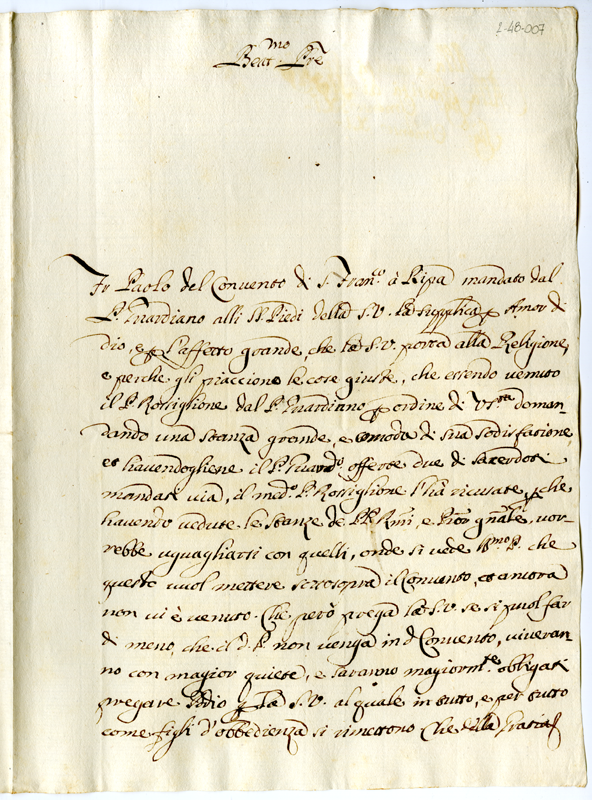 2-48-007
Beat.mo Pre
Fr Paolo del Convento di S. Fran.co à Ripa mandato dal
P. Guardiano alli SS. Piedi della S.V. la supplica p Amor di
Dio, e p l'affetto grande, che la S.V. porta alla Religione,
e perche gli piaccione le cose giuste, che essendo venuto
il P. Rossiglione dal P. Guardiano p ordine di doman-
dando una stanza grande, e comoda di sua sodisfatione
et havendogliene il P. Guard.o offerte due di sacerdoti
mandati via, il med.o P. Rossiglione l'hà ricusate, p che
havendo vedute le stanze de PP. Rmi, e gnãle, vor-
rebbe uguagliarsi con quelli, onde si vede B.mo P. che
questo vuol mettere sottosopra il Convento, et ancora
non vi è venuto. Che però prega la S.V. se si può far
di meno, che il d. P. non venga in d. Convento, viveran-
no con magior quiete, e saranno magiorm.te obligati
pregare Iddio p la S.V. al quale in tutto, e per tutto
come figli d'obbedienza si rimettono Che della Gratia